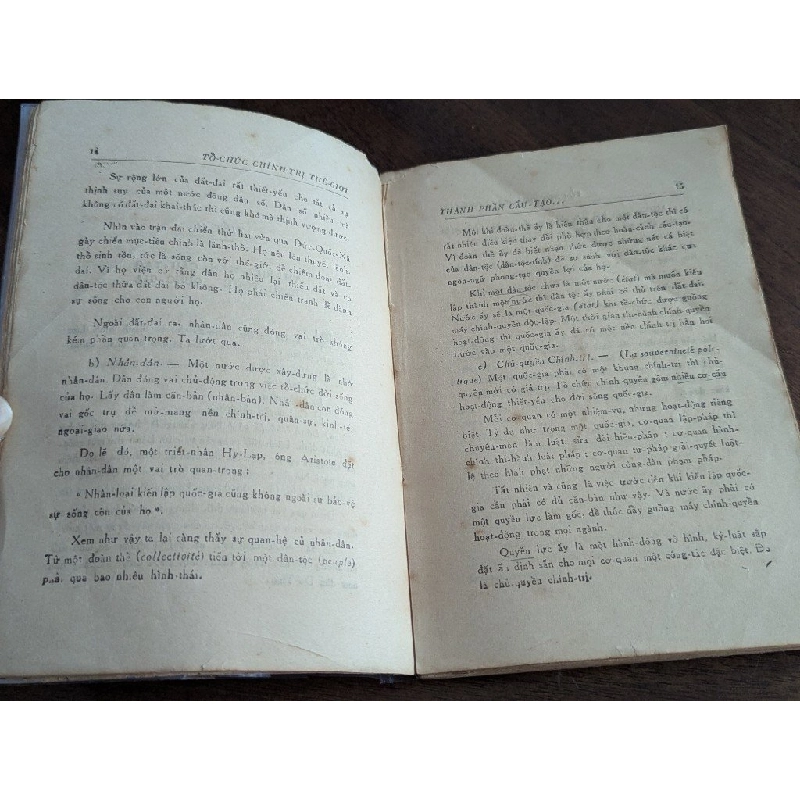 14
TỔ-CHỨC CHÍNH TRỊ THẾ-GIỚI
Sự rộng lớn của đất-đai rất thiết-yếu cho tất cả sự
thịnh suy của một nước đông dân số. Dân số nhiều và
không có đất-đai khai-thác thì cũng khó mà thịnh vượng được.
Nhìn vào trận đại chiến thứ hai vừa qua
gây chiến mục-tiêu chính là lãnh-thổ. Họ nêu lên thuyết
thổ sinh tồn, tức là sống còn với thế-giới, để chiếm đoạt đất-
đai. Vì họ viện cớ rằng dân họ nhiều lại thiếu đất và
dân-tộc thừa đất đai bỏ không. Họ phải chiến tranh
sự sống cho con người họ.
Ngoài đất-đai ra, nhân-dân cũng đóng vai trò không
kém phần quan trọng. Ta lướt qua.
b) Nhân-dân. — Một nước được xây-dựng là nhờ
nhân-dân. Dân đóng vai chủ-động trong việc tổ-chức đời sống
của họ. Lấy dân làm căn-bản (nhân-bản). Nhân-dân còn đóng
vai gốc trụ để mở-mang nền chính-trị, quân-sự, kinh-tế
ngoại-giao nữa.
Do lẽ đó, một triết-nhân Hy-Lạp, ông Aristote đặt
cho nhân-dân một vai trò quan-trọng :
« Nhân-loại kiến lập quốc-gia cũng không ngoài sự bảo-vệ
sự sống còn của họ ».
Xem như vậy ta lại càng thấy sự quan-hệ của nhân-dân.
Từ một đoàn thể (collectivité) tiến tới một dân-tộc (peuple)
phải qua bao nhiêu hình-thái.
THÀNH PHẦN CẤU-TẠO...
15
Một khi đoàn-thể ấy là hiện thân cho một dân-tộc thì cố
tất nhiên điều kiện thay đổi phù hợp theo hoàn-cảnh cấu-tạo.
Vì đoàn thể ấy đã biết nhận thức được những nét cá biệt
của dân-tộc để so sánh với dân-tộc khác qua
ngôn-ngữ phong-tục quyền lợi của họ.
Khi một dân tộc chưa là một nước (état) mà muốn kiến
lập thành một nước thì dân tộc ấy phải có thủ trên đất đai.
Nước ấy sẽ là một quốc-gia (état) khi tổ-chức được guồng
máy chính-quyền độc-lập. Một thời gian thi-hành chính-quyền
hoạt-động thì quốc-gia ấy đã có một nền chính trị
c) Chủ-quyền Chính-trị. — (La souveraineté poli-
tique). Một quốc-gia phải có một khuôn chính-trị thì chủ-
quyền mới có giá-trị. Tổ chức chính quyền gồm nhiều cơ cấu
hoạt-động thiết-yếu cho đời sống quốc-gia.
Mỗi cơ-quan có một nhiệm-vụ, nhưng hoạt-động riêng
biệt. Tỷ dụ như trong một quốc-gia, cơ-quan lập-pháp thì
chuyên-môn làm luật, sửa đổi hiến-pháp ; cơ-quan hành
chính thi-hành luật pháp ; cơ-quan tư pháp giải-quyết luật-
lệ theo hình phạt những người công-dân phạm pháp.
Tất nhiên và cũng là việc trước tiên khi kiến lập quốc-
gia cần phải có dù căn-bản như vậy. Và nước ấy phải có
một quyền lực làm gốc, để thúc đẩy guồng máy chính quyền
hoạt-động trong mọi ngành.
Quyền lực ấy là một hình-động vô hình, kỷ-luật sắp
đặt ấn định sẵn cho mọi cơ-quan một công-tác đặc biệt. Đó
là chủ-quyền chính-trị.